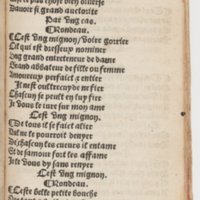 Dauoir si grand auctorite
Par vng cas.
Rondeau.
Cest vng mignon/voire gorrier
Et qui est dresseux nommer
Vng grand entreteneur de dame
Grand abbateur de fille ou femme
Amoureux perfaict & entier
Il nest oultrecuyde ne fier
Chascun se peult en luy fier
Je vous le iure sur mon ame
Cest vng mignon.
De tous il se faict aiser
Nul ne te pourroit denyer
De chascun les cueurs il entame
Et de samour fort les affame
Cest vng mignon.
Rondeau.
Ceste belle petite bouche